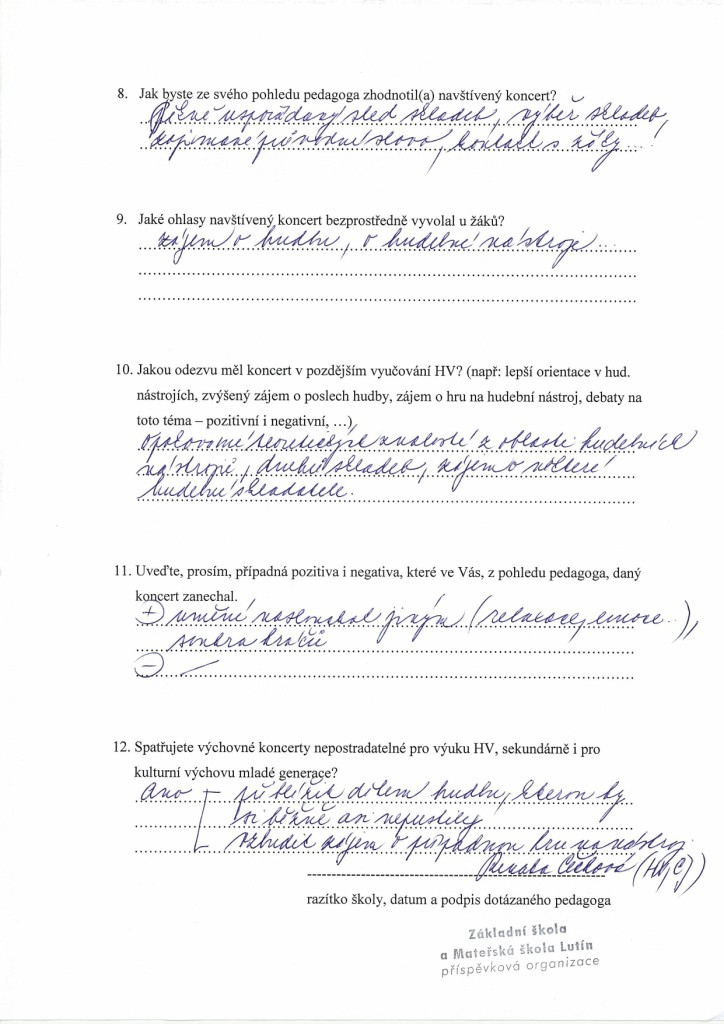 8. Jak byste ze svého pohledu pedagoga zhodnotil(a) navštívený koncert?
Pěkně uspořádaný sled skladeb, výběr skladeb,
zajímavé průvodní slovo, kontakt s žáky...!
9. Jaké ohlasy navštívený koncert bezprostředně vyvolal u žáků?
zájem o hudbu, o hudební nástroje...
10. Jakou odezvu měl koncert v pozdějším vyučování HV? (např: lepší orientace v hud.
nástrojích, zvýšený zájem o poslech hudby, zájem o hru na hudební nástroj, debaty na
toto téma – pozitivní i negativní, …)
opakování teoretických znalostí z oblasti hudebních
nástrojů, druhů skladeb, zájem o některé
hudební skladatele.
11. Uveďte, prosím, případná pozitiva i negativa, které ve Vás, z pohledu pedagoga, daný
koncert zanechal.
+ umění naslouchat jiným (relaxace, emoce..),
souhra hráčů
– /
12. Spatřujete výchovné koncerty nepostradatelné pro výuku HV, sekundárně i pro
kulturní výchovu mladé generace?
Ano – přiblížit dětem hudbu, kterou by
si běžně ani nepustily
vzbudit zájem o případnou hru na nástroj
Renata (HV, ČJ)
razítko školy, datum a podpis dotázaného pedagoga
Základní škola
a Mateřská škola Lutín
příspěvková organizace